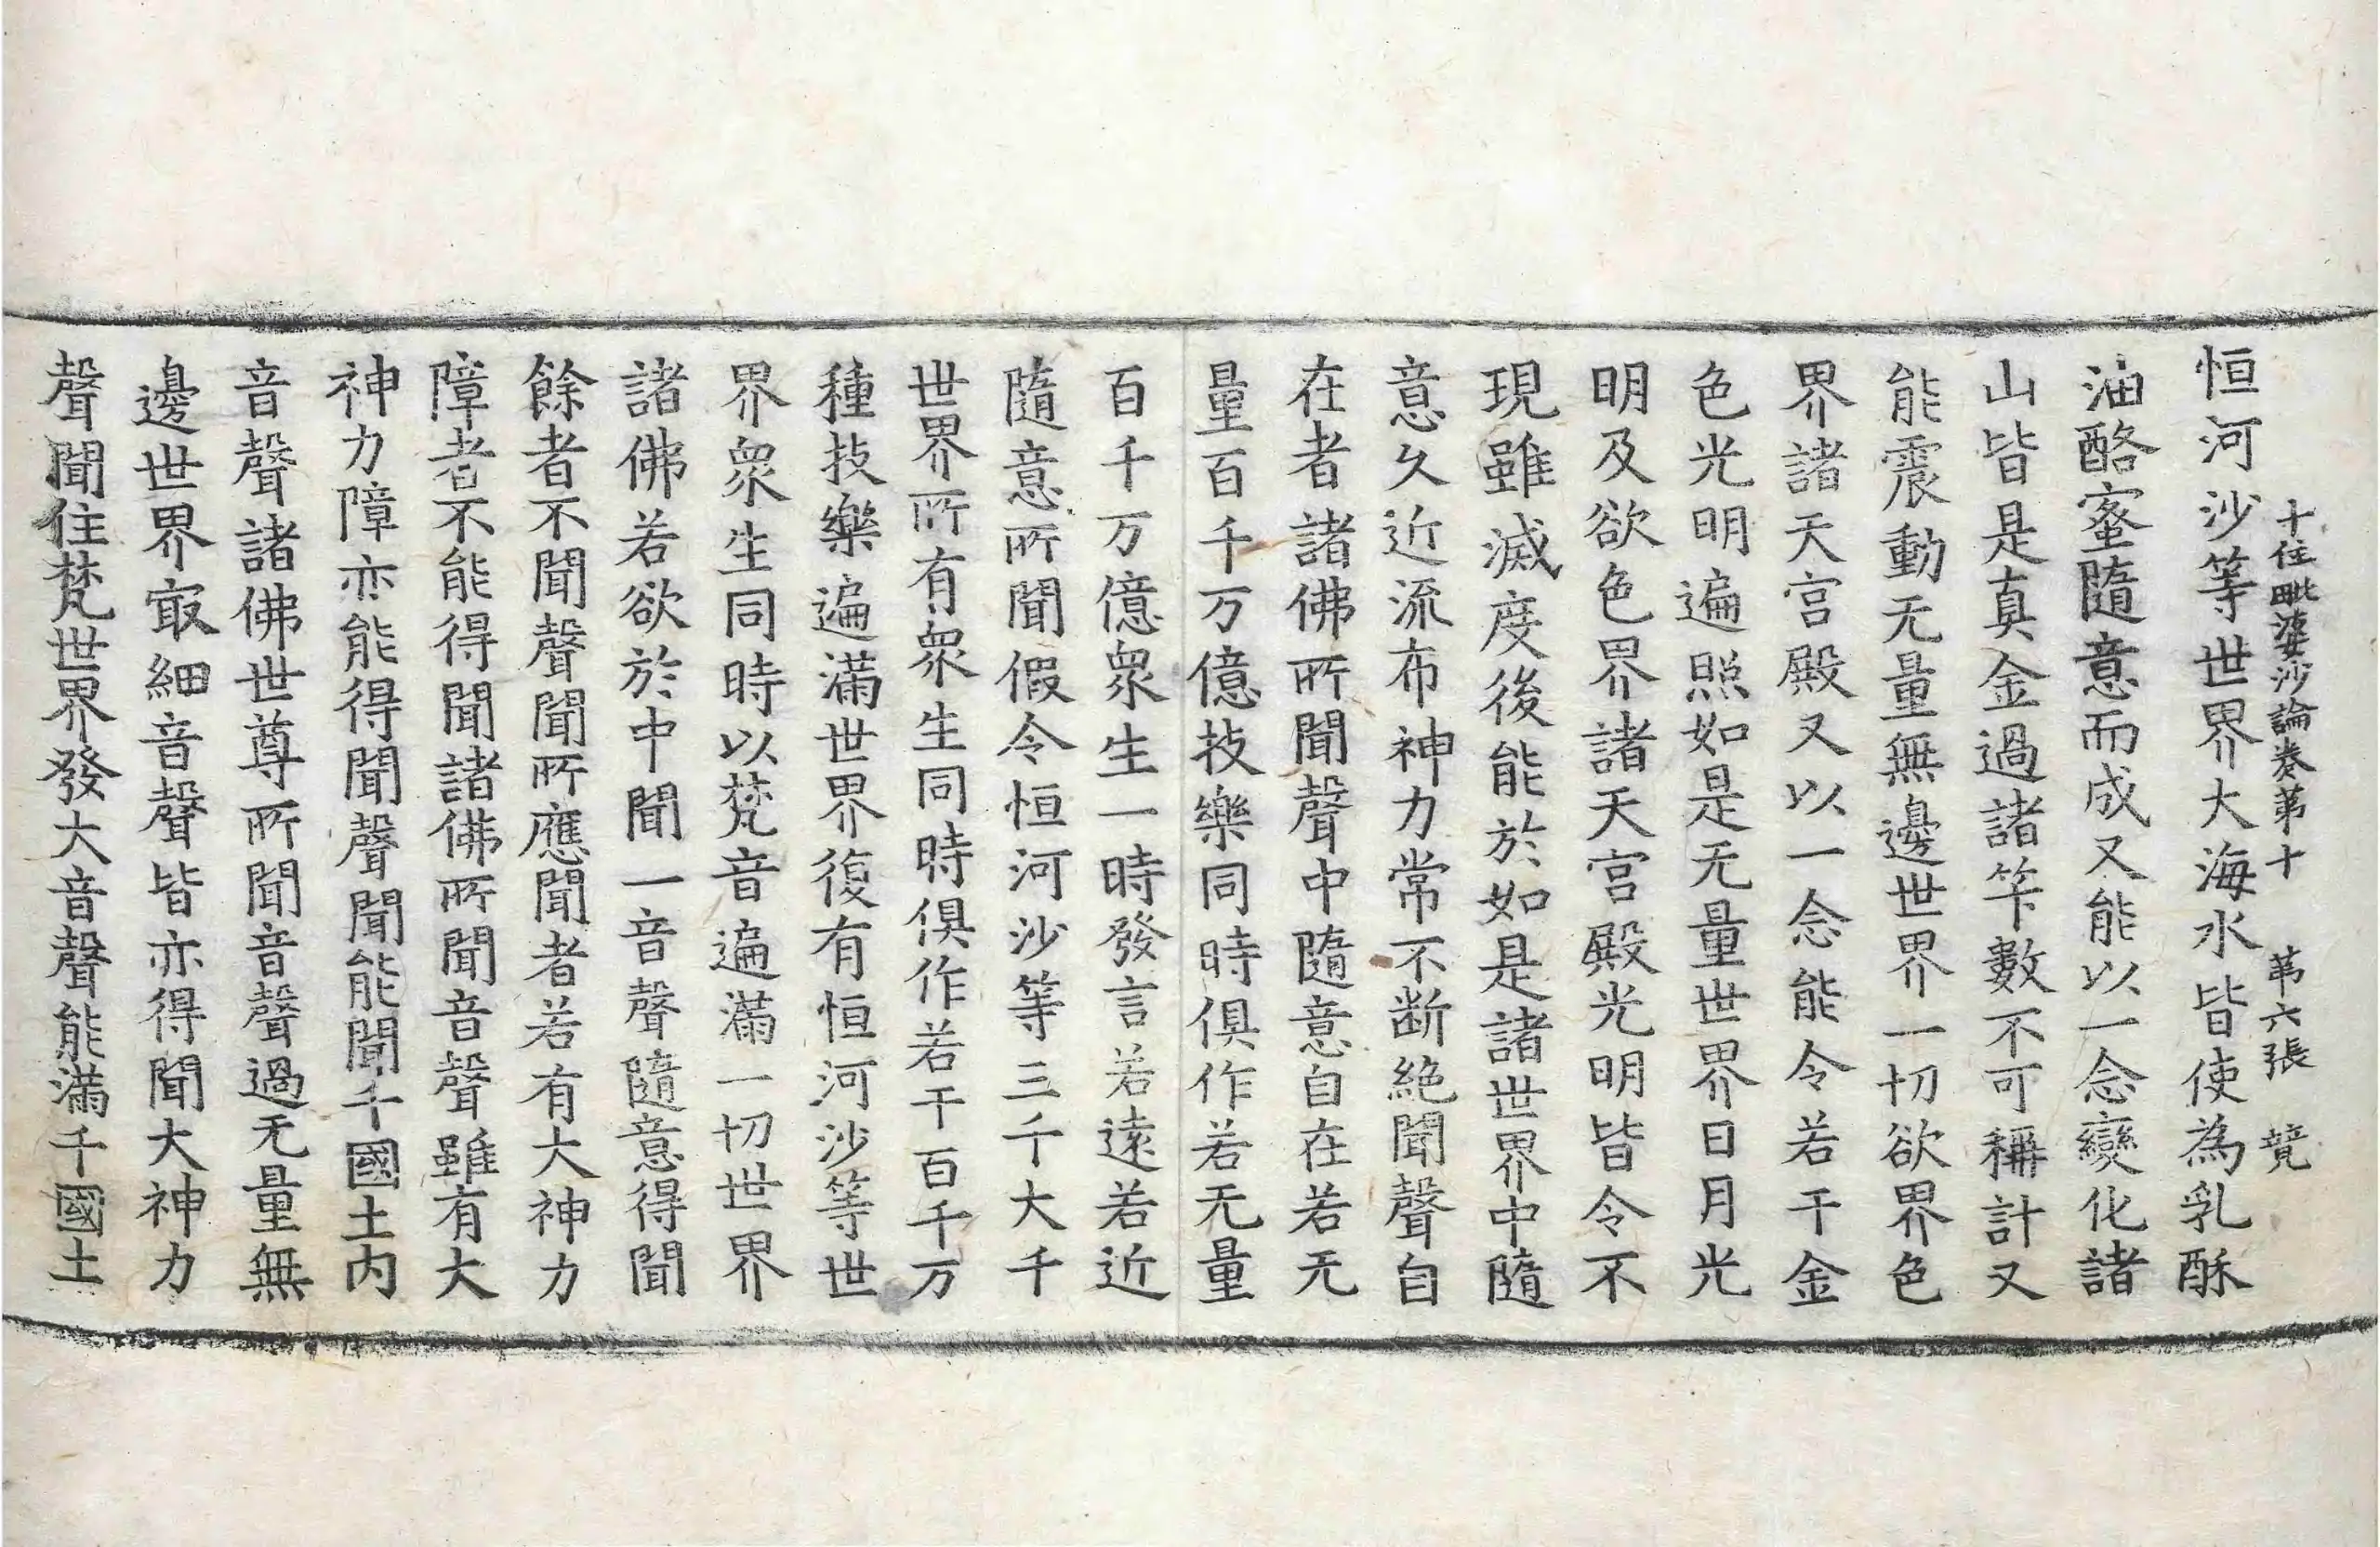 十住毗婆沙論卷第十 第六張 競
恒河沙等世界大海水皆使為乳酥
油酪蜜隨意而成又能以一念變化諸
山皆是真金過諸笇數不可稱計又
能震動无量無邊世界一切欲界色
界諸天宮殿又以一念能令若干金
色光明遍照如是无量世界日月光
明及欲色界諸天宮殿光明皆令不
現雖滅度後能於如是諸世界中隨
意久近流布神力常不断絶聞聲自
在者諸佛所聞聲中隨意自在若无
量百千万億技樂同時俱作若无量
百千万億眾生一時發言若遠若近
隨意所聞假令恒河沙等三千大千
世界所有眾生同時俱作若干百千万
種技樂遍滿世界復有恒河沙等世
界眾生同時以梵音遍滿一切世界
諸佛若欲於中聞一音聲隨意得聞
餘者不聞聲聞所應聞者若有大神力
障者不能得聞諸佛所聞音聲雖有大
神力障亦能得聞聲聞能聞千國土内
音聲諸佛世尊所聞音聲過无量無
邊世界㝡細音聲皆亦得聞大神力
聲聞住梵世界發大音聲能滿千國土